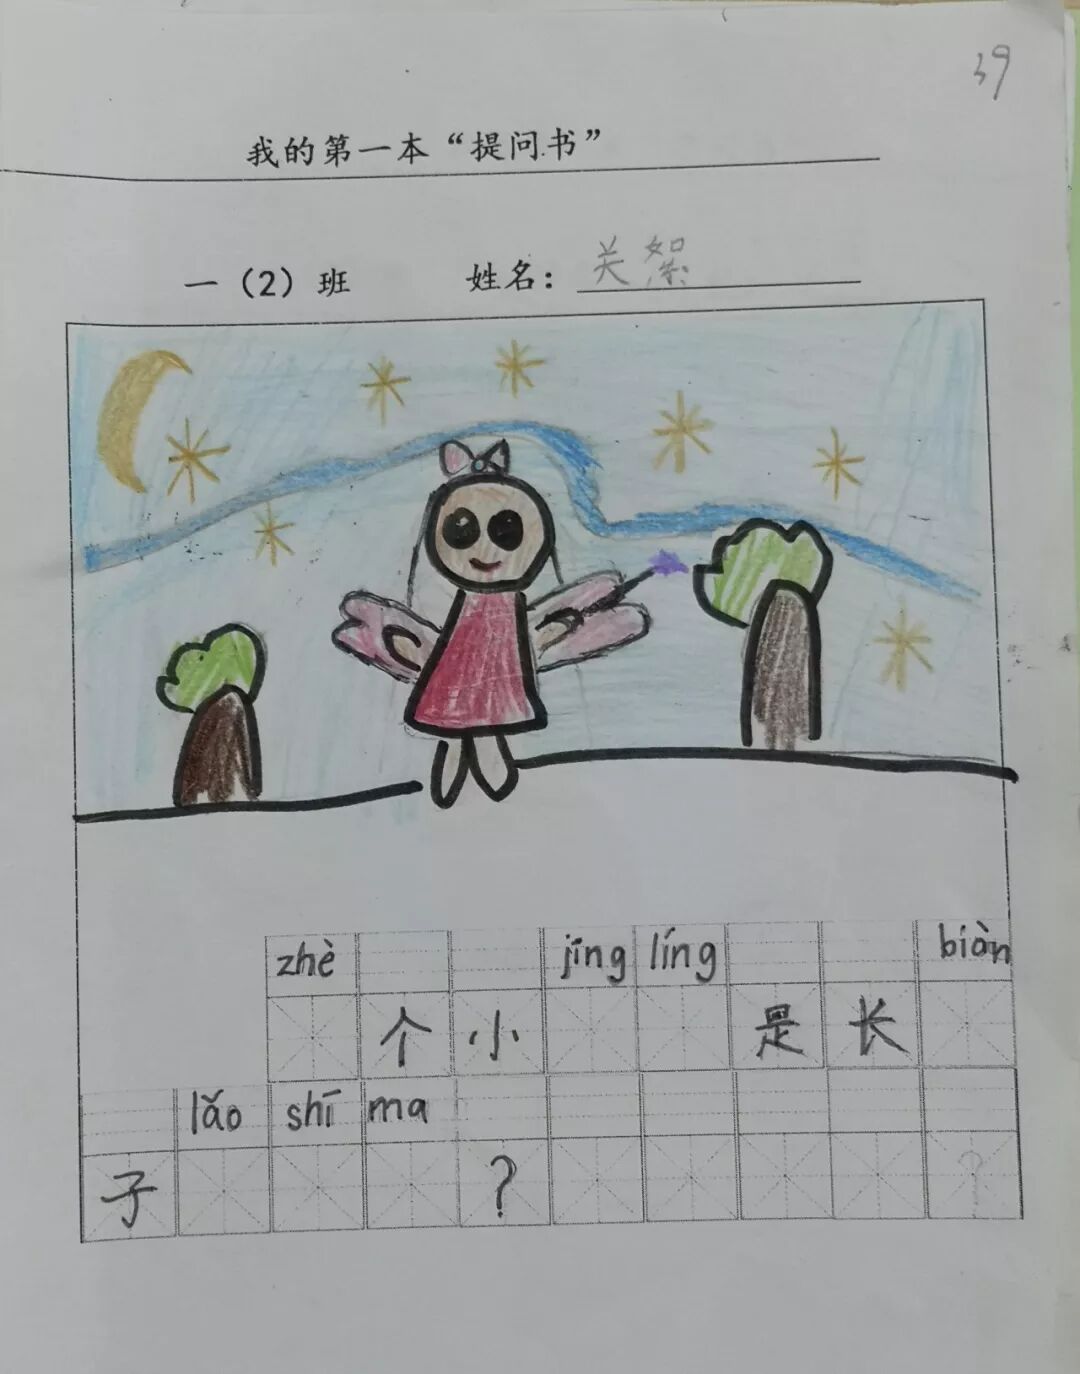 39
我的第一本“提问书”
一（2）班 姓名：关絮
zhè jīng líng biàn
个小是长
lǎo shī ma
子？